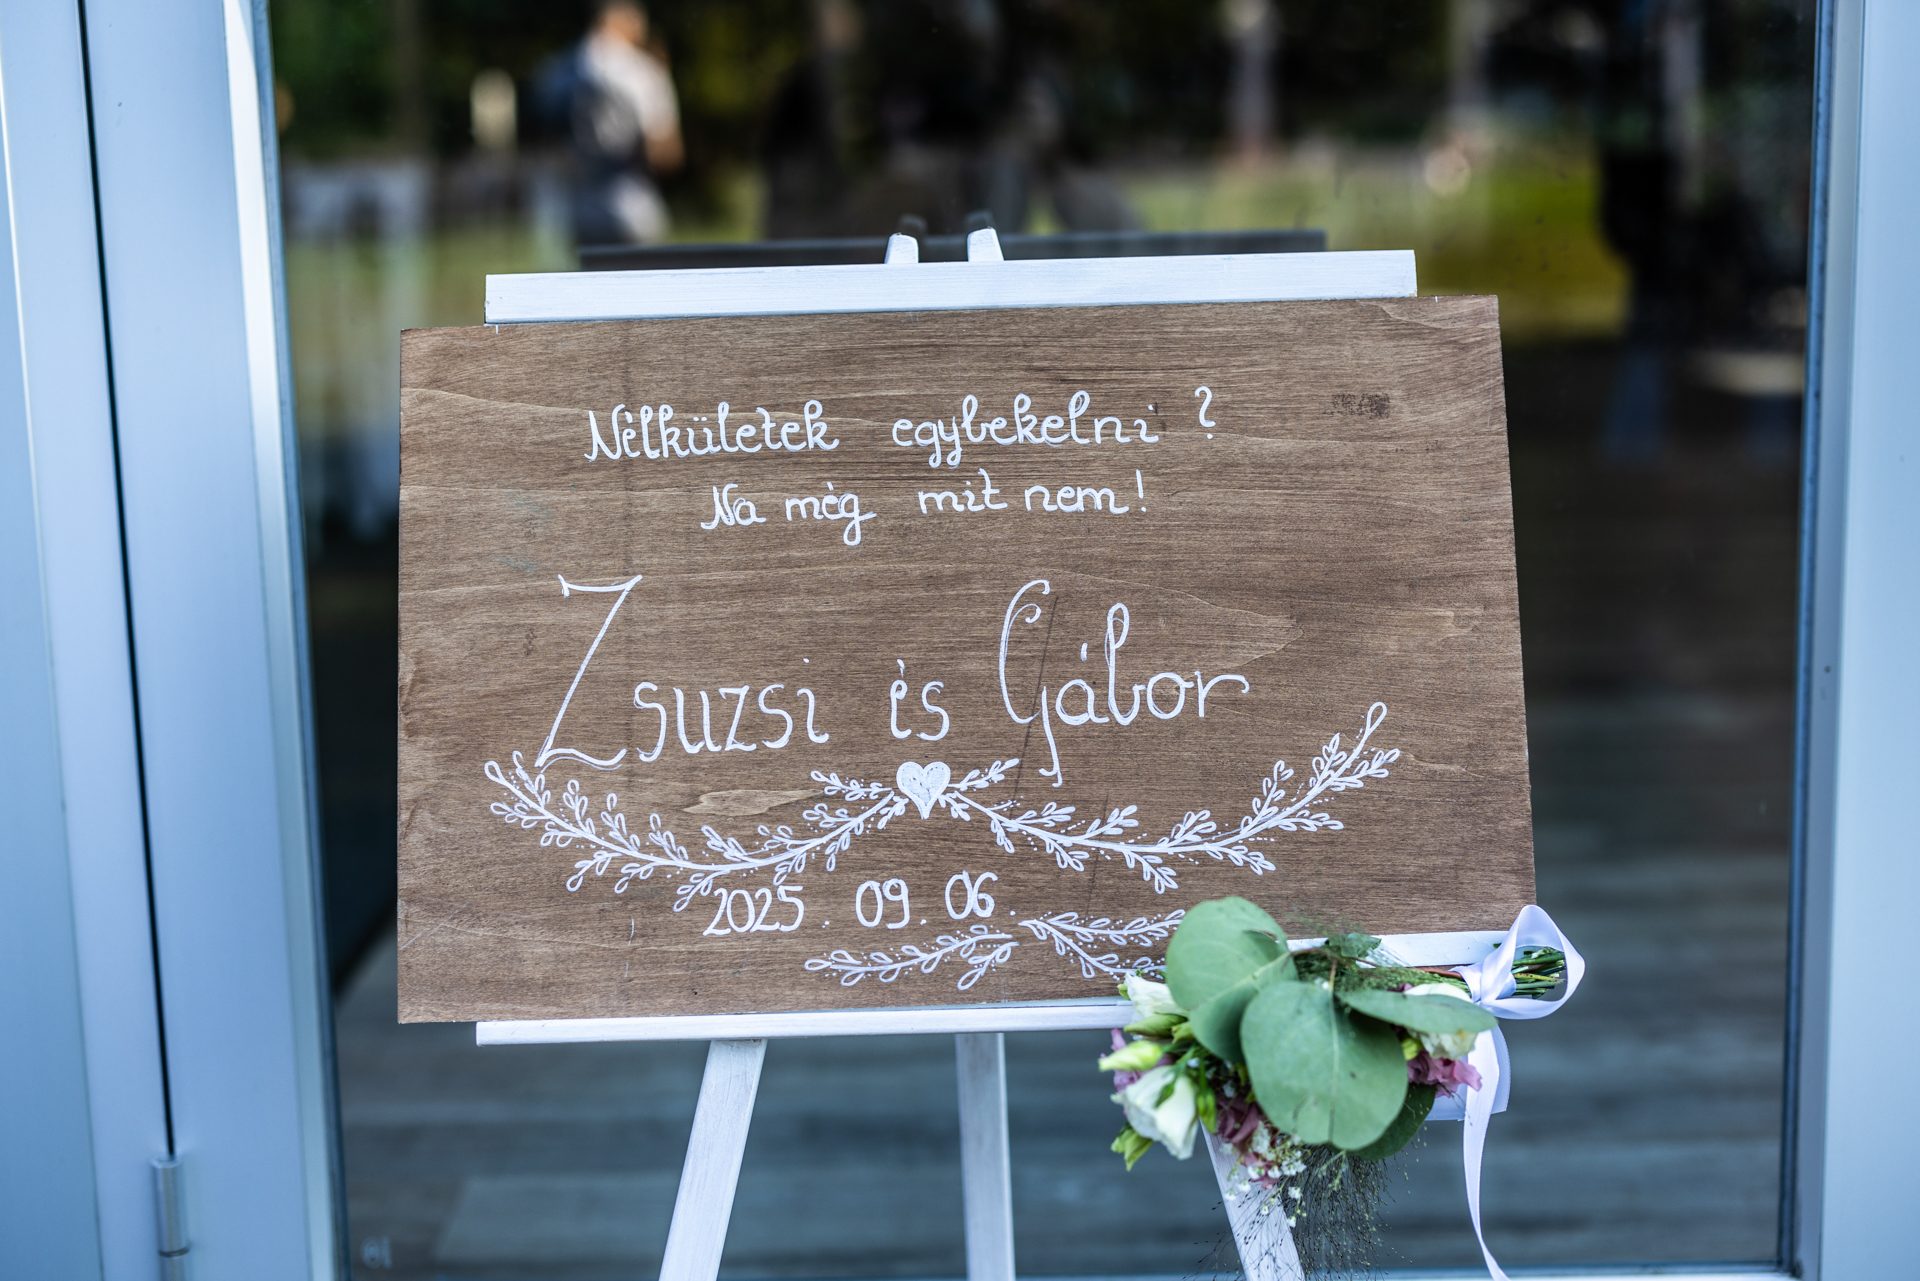 Nélkületek egybekelni ?
Na még mit nem!
Zsuzsi és Gábor
2025. 09. 06.